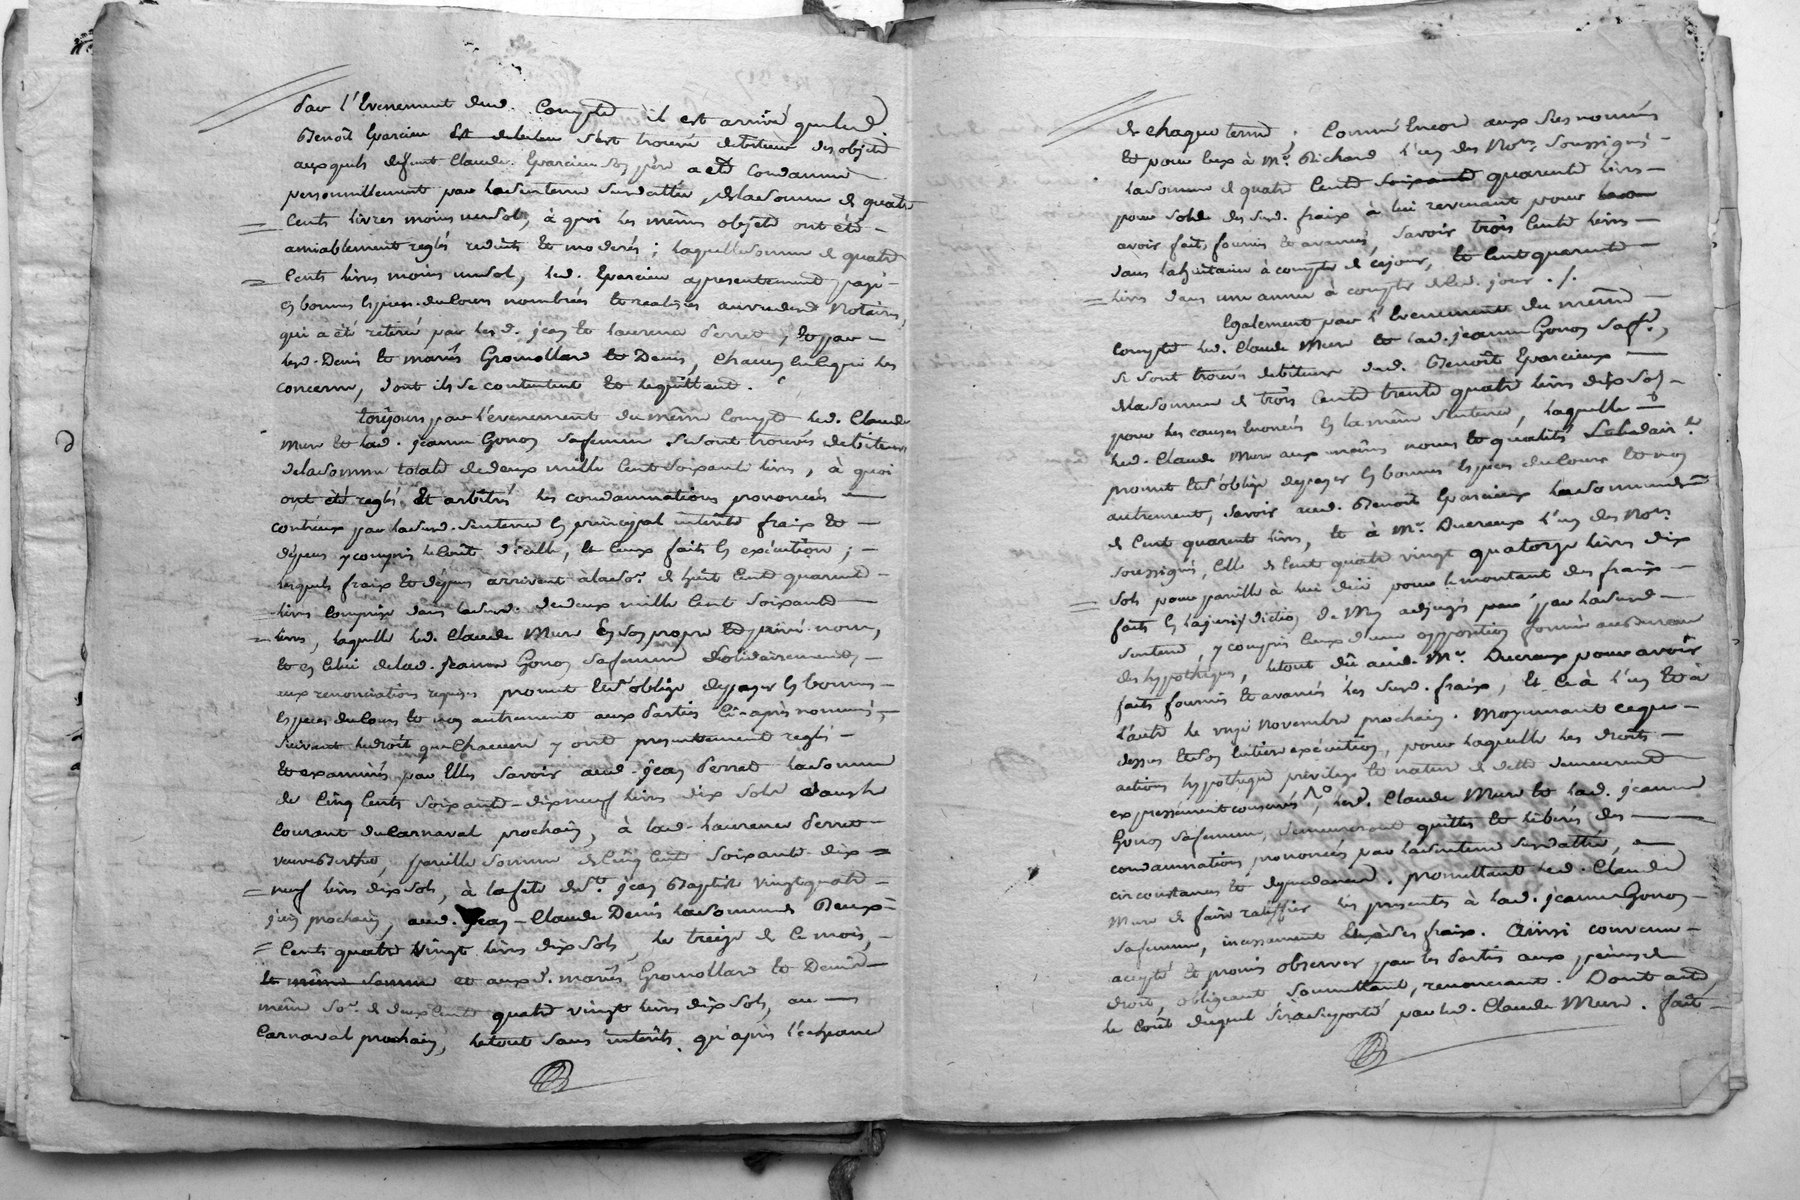 Par l'Evenement dud. Compte il est arrivé queled.
Benoît Eparcieu Est debiteu s'est trouvé debiteur des objets
auxquels defunt Claude Eparcieu son père a eté Condamné
personnellement par lasentence susdattée, delasomme de quatre
Cents livres moins un sol, à quoi les mêmes objets ont été
amiablement reglés reduits et moderés ; laquelle somme de quatre
Cents livres moins un sol, led. Eparcieu apresentement payé
en bonnes Especes du Cours nombrées et realisées auvu desd Notaires,
qui a été retirée par lesd. jean et laurence Perret, et par
lesd. Denis et mariés Gromollard et Denis, Chacun Ence qui les
concerne, dont ils se contentent et lequittent.
toujours par l'evenement du même Compte led. Claude
Mure et lad. jeanne Gonon safemme se sont trouvés debiteurs
delasomme totale de deux mille Cent soixante livres, à quoi
ont été reglés et arbitrés les condamnations prononcées
contr'eux par lasusd. sentence En principal interêts fraix et
dépens y compris le Coût d'icelle, et Ceux faits En exécution ;
lesquels fraix et dépens arrivent à lasoe. de huit Cent quarente
livres Comprise dans lasusd. de deux mille Cent soixante
livres, laquelle led. Claude Mure En son propre et privé nom,
et en Celui de lad. jeanne Gonon safemme solidairement
aux renonciations requises promet Et s'oblige de payer En bonnes
Especes du Cours et non autrement aux Parties Ci-après nommées,
suivant le droit que Chacune y ont presentement reglé
et examinés par Elles savoir aud. jean Perret lasomme
de Cinq Cents soixante-dixneuf livres dix sols
Courant du Carnaval prochain, à lad. laurence Perret
veuve Berthet, pareille somme de Cinq Cent soixante-dix
neuf livres dix sols, à lafête de St. jean Baptiste vingt quatre
juin prochain, aud. jean-Claude Denis lasomme de Deux
Cent quatre vingt livres dix sols, le treize de Ce mois,
la même somme et auxd. mariés Gromollard et Denis
même soe. de deux Cents quatre vingt livres dix sols, au
Carnaval prochain, letout sans interêts qu'après l'echéance
de chaque terme. Comme Encore aux susnommés
et pour Eux à Me. Richard l'un des Nores. soussignés
lasomme de quatre Cent soixante quarente livres
pour solde des susd. fraix à lui revenant pour
avoir faits fournis et avancés, savoir trois Cent livres
dans lahuitaine à compter de cejour, et Cent quarente
livres dans une année à compter deled. jour ./.
Egalement par l'Evenement du même
Compte led. Claude Mure et lad. jeanne Gonon safe.
se sont trouvés debiteurs dud. Benoît Eparcieux
delasomme de trois Cents trente quatre livres dix sols
pour les causes Enoncées En la même sentence, laquelle
led. Claude Mure aux mêmes noms et qualités solidaire.
promet Et s'oblige depayer En bonnes Especes du Cours et non
autrement, savoir aud. Benoît Eparcieux lasomme
de Cent quarente livres, et à Me. Ducreux l'un des Nores
soussignés, Celle de Cent quatre vingt quatorze livres dix
sols pour pareille à lui düe pour lemontant des fraix
faits En lajurisdiction de adjugés par lasusd
sentence, y compris Ceux d'une opposition formée au Bureau
des hypotheques, letout dû aud. Me. Ducreux pour avoir
faits fournis et avancés les susd. fraix, Et Ce à l'un Et à
l'autre le onze Novembre prochain. Moyennant Ceque
dessus et son Entiere exécution, pour laquelle les droits
actions hypotheque privilege et nature de dette demeurent
expressément conservés, led. Claude Mure et lad. jeanne
Gonon safemme, demeureront quittes et liberés des
condamnations prononcées par lasentence susdattée,
circonstances et dependances. promettant led. Claude
Mure de faire ratiffier les presentes à lad. jeanne Gonon
safemme, incessament ses fraix. Ainsi convenu
accepté et promis observer par les Parties aux peines de
droit, obligeant soumettant, renonceant. Dont acte
le Coût duquel sera supporté par led. Claude Mure. fait